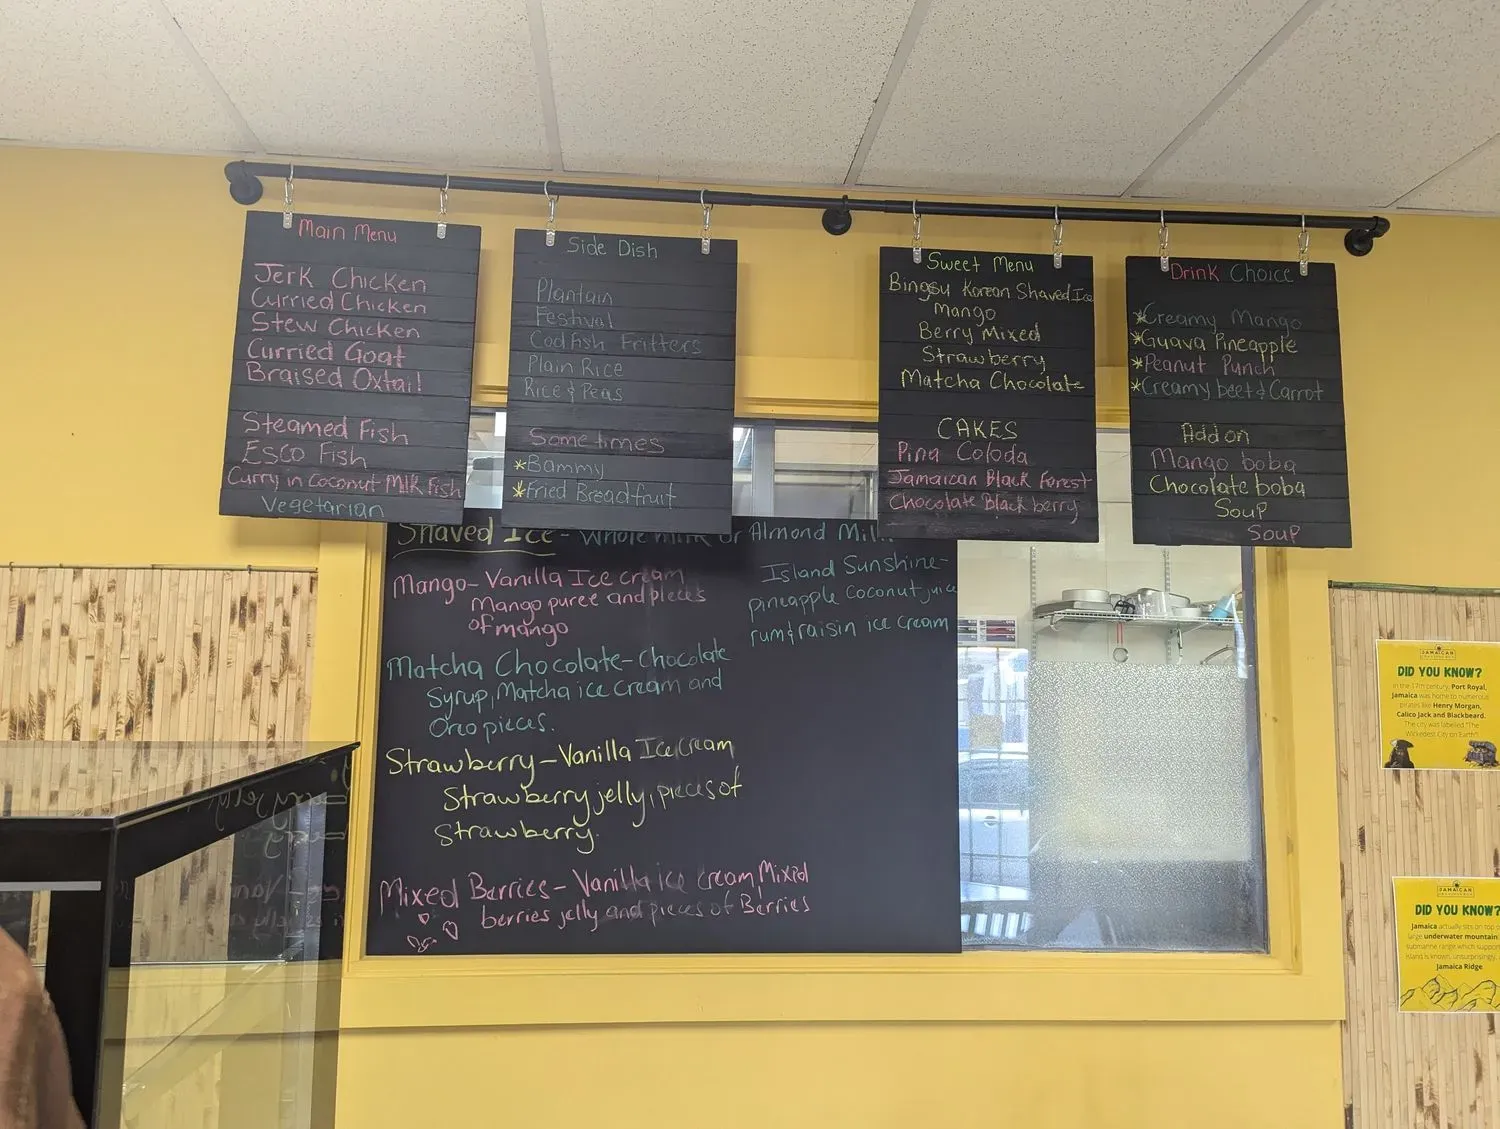 Main Menu
Jerk Chicken
Curried Chicken
Stew Chicken
Curried Goat
Braised Oxtail
Steamed Fish
Esco Fish
Curry in Coconut Milk Fish
Vegetarian
Side Dish
Plantain
Festival
Codfish Fritters
Plain Rice
Rice & Peas
Sometimes
*Bammy
*Fried Breadfruit
Sweet Menu
Bingsu Korean Shaved Ice
Mango
Berry Mixed
Strawberry
Matcha Chocolate
CAKES
Pina Coloda
Jamaican Black Forest
Chocolate Black berry
Drink Choice
*Creamy Mango
*Guava Pineapple
*Peanut Punch
*Creamy beet & Carrot
Add on
Mango boba
Chocolate boba
Soup
Soup
Shaved Ice - Whole milk or Almond Mil
Mango- Vanilla Ice cream
Mango puree and pieces
of mango
Matcha Chocolate- Chocolate
Syrup, Matcha ice Cream and
Oreo pieces.
Strawberry - Vanilla Ice Cream
Strawberry jelly, pieces of
Strawberry.
Mixed Berries- Vanilla ice cream Mixed
berries jelly and pieces of Berries
Island Sunshine-
pineapple coconut juice
rum & raisin ice cream
JAMAICAN
DID YOU KNOW?
In the 17th century, Port Royal,
Jamaica was home to numerous
pirates like Henry Morgan,
Calico Jack and Blackbeard.
The city was labelled "The
Wickedest City on Earth"
JAMAICAN
DID YOU KNOW?
Jamaica actually sits on top
large underwater mountain
submarine range which
island is known, unsurprisingly,
Jamaica Ridge